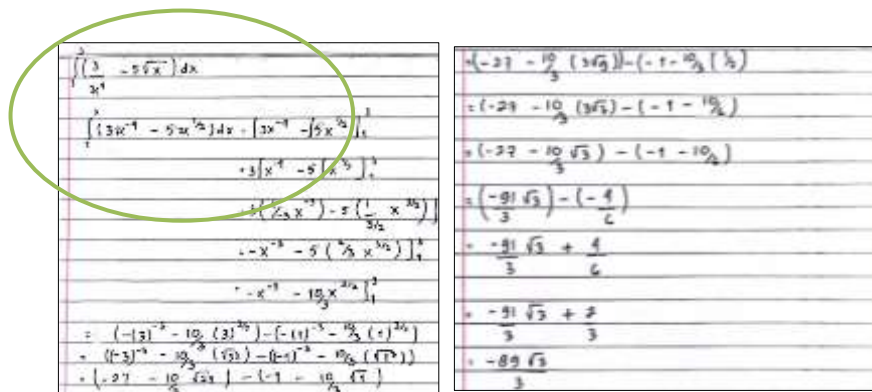 ∫₁³ (3/x⁴ - 5√x) dx
∫₁³ (3x⁻⁴ - 5x^(1/2)) dx = ∫3x⁻⁴ - ∫5x^(1/2)]₁³
= 3∫x⁻⁴ - 5∫x^(1/2)]₁³
(1/-3 x⁻³) - 5 (1/(3/2) x^(3/2))]
= -x⁻³ - 5 (2/3 x^(3/2))]₁³
= -x⁻³ - 10/3 x^(3/2)]₁³
= (-(3)⁻³ - 10/3 (3)^(3/2)) - (-(1)⁻³ - 10/3 (1)^(3/2))
= ((-3)⁻³ - 10/3 (√3³)) - ((-1)⁻³ - 10/3 (√1³))
= (-27 - 10/3 √27) - (-1 - 10/3 √1)
= (-27 - 10/3 (3√3)) - (-1 - 10/3 (½)
= (-27 - 10/3 (3√3) - (-1 - 10/6)
= (-27 - 10/3 √3) - (-1 - 10/6)
= (-91/3 √3) - (-4/6)
= -91/3 √3 + 4/6
= -91/3 √3 + 2/3
= -89√3/3